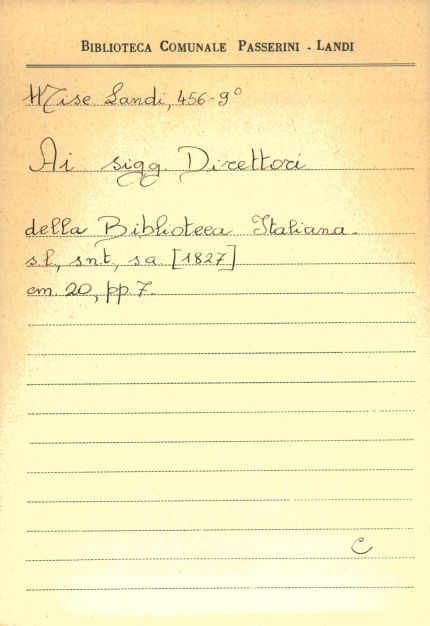 BIBLIOTECA COMUNALE PASSERINI - LANDI
Misc Landi, 456-9°
Ai sigg Direttori
della Biblioteca Italiana.
sl, snt, sa [1827]
cm 20, pp. 7.
C